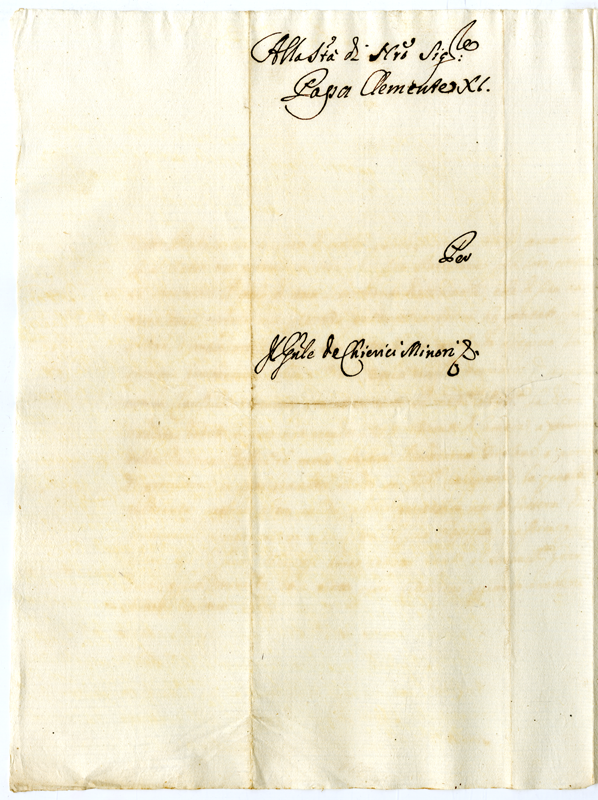 Alla Stà di Nrõ Sigre
Papa Clemente XI.
Per
Il Gñle de Chierici Minori &.